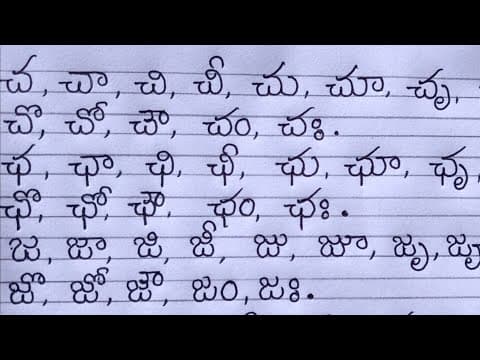 చ, చా, చి, చీ, చు, చూ, చృ,
చొ, చో, చౌ, చం, చః.
ఛ, ఛా, ఛి, ఛీ, ఛు, ఛూ, ఛృ,
ఛొ, ఛో, ఛౌ, ఛం, ఛః.
జ, జా, జి, జీ, జు, జూ, జృ, జౄ
జొ, జో, జౌ, జం, జః.